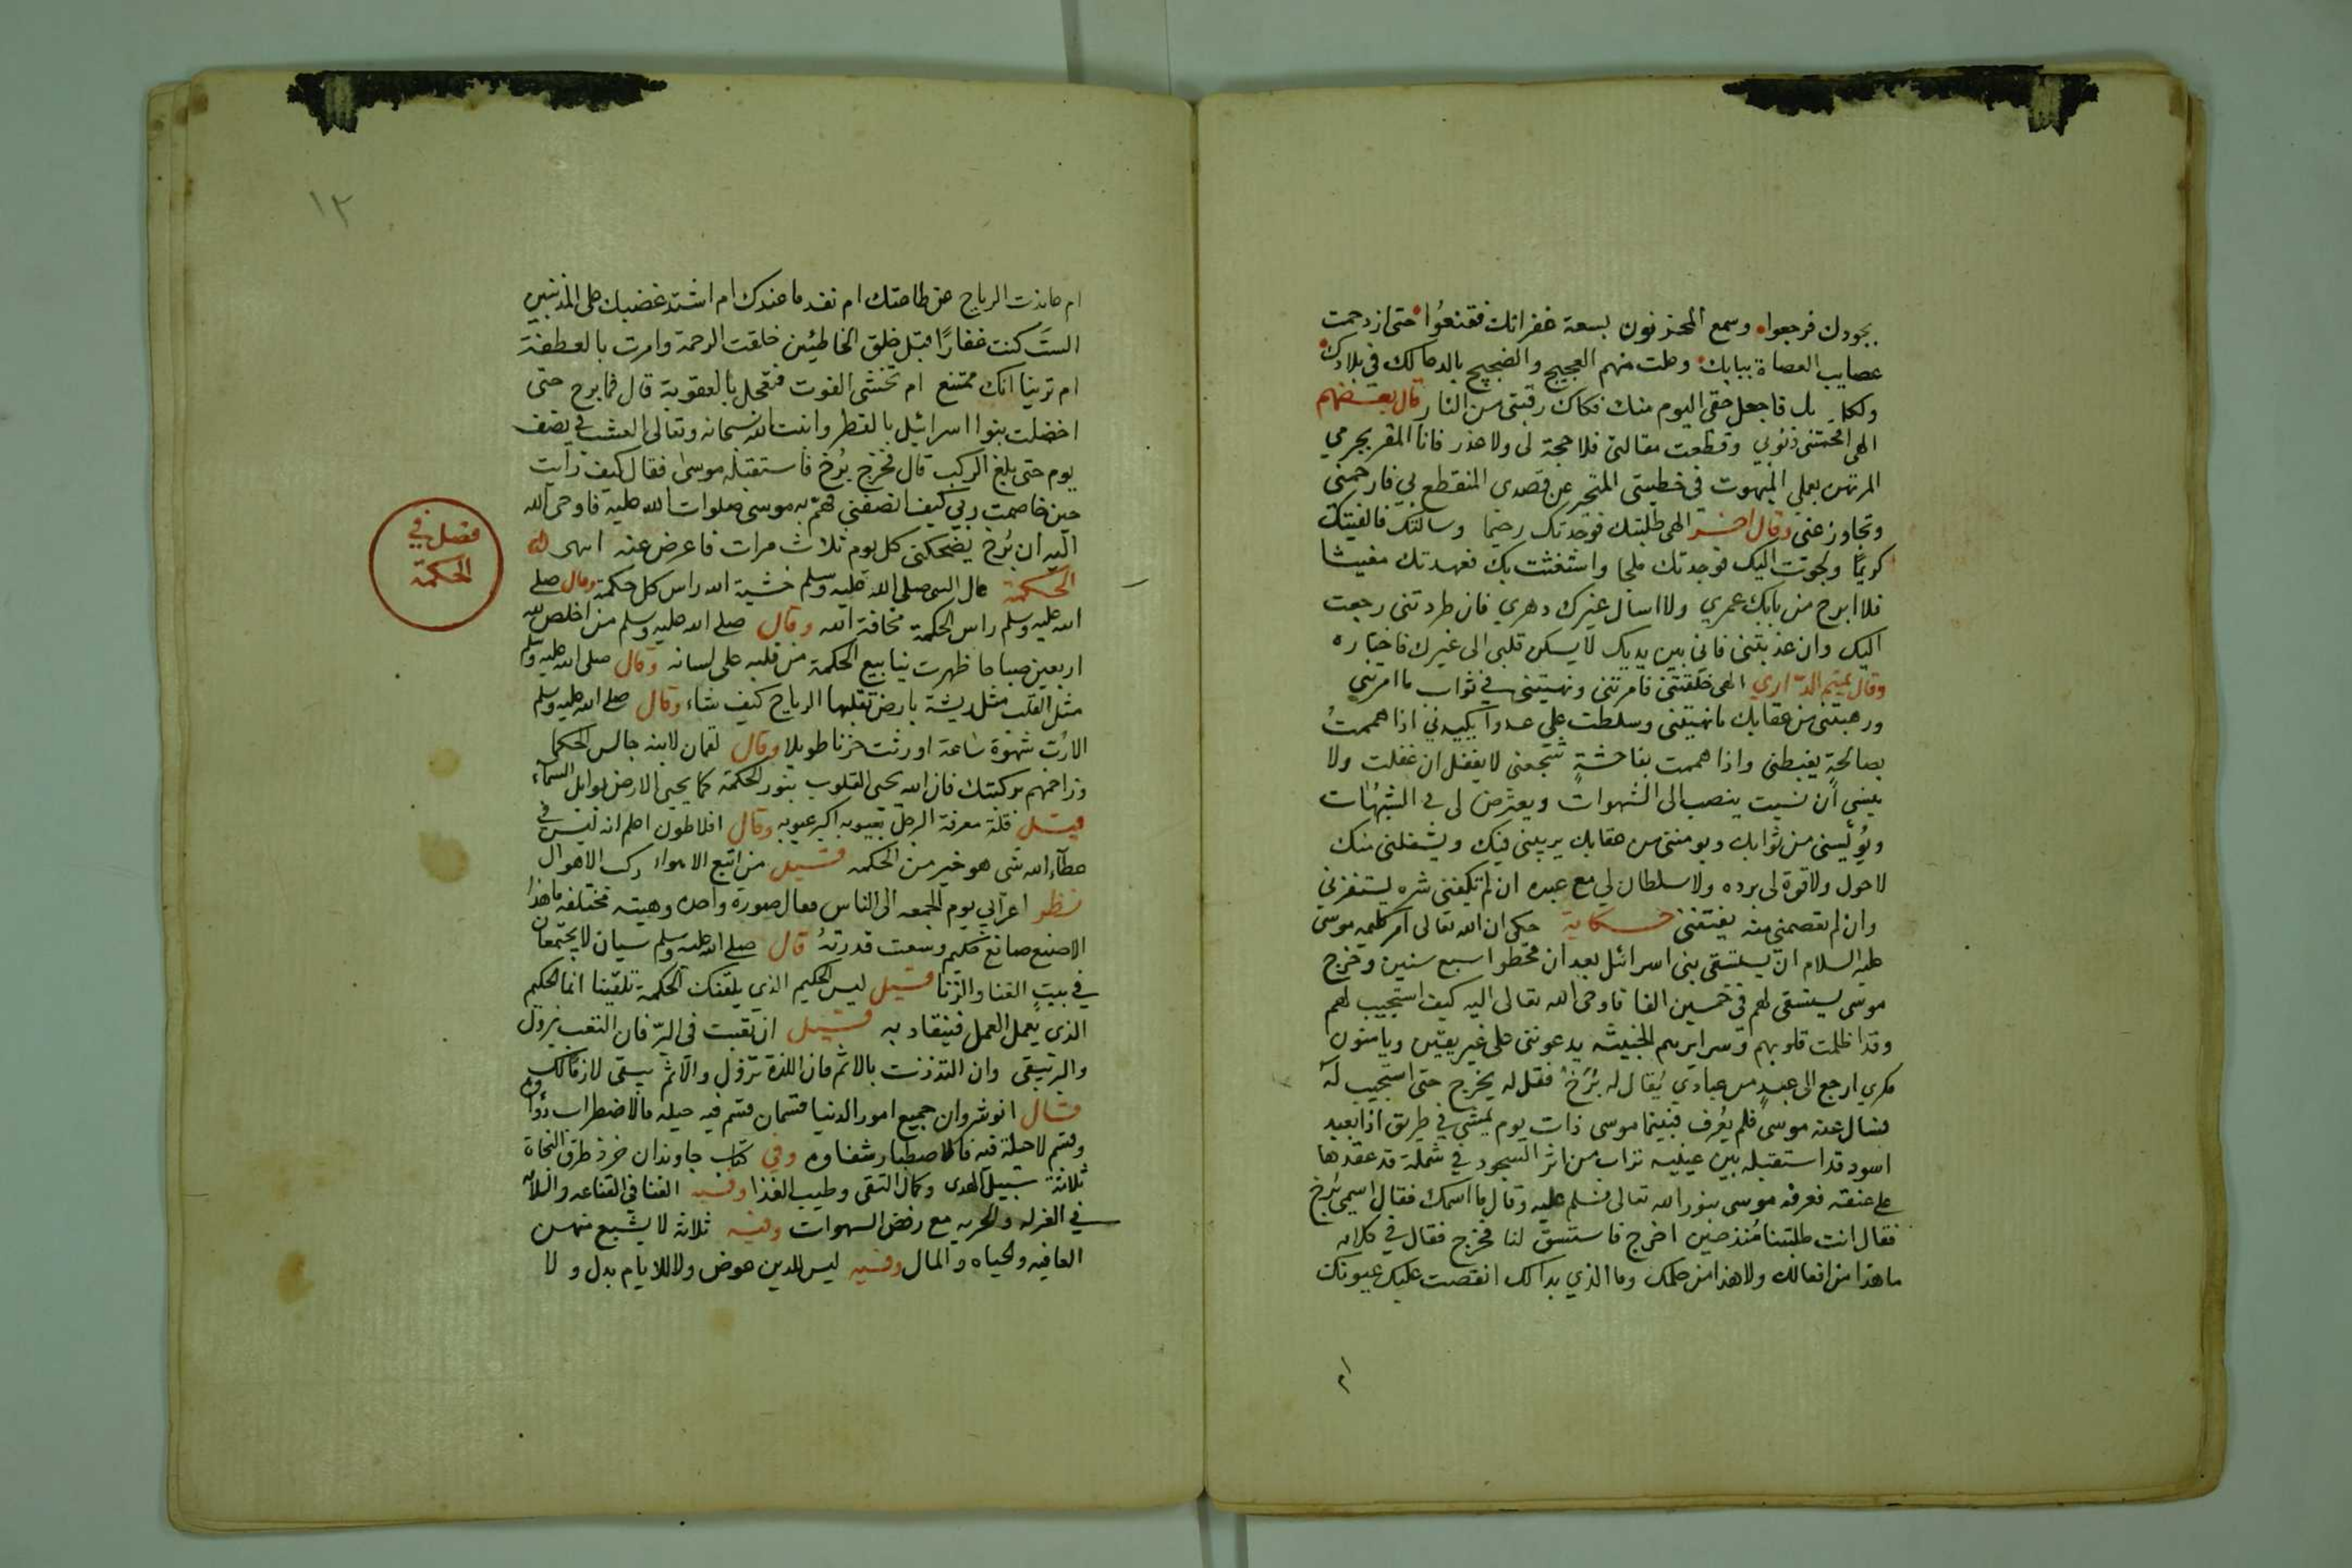 بجودك فرجعوا وسمع المحزنون بسعة غفرانك فقنعُوا حتى ازدحمت
عصايب العصاة ببابك وعلت منهم العجيج والضجيج بالدعا لك في بلادك
قال بعضهم
الهى افحمتني ذنوبي وقطعت مقالتى فلا حجة لى ولا عذر فانا المقر بجرمي
المرتهن بعملي المبهوت فى خطيتى المتحير عن قصدى المنقطع بي فارحمني
وتجاوز عنى وقال اخر الهى طلبتك فوجدتك رحيما وسالتك فالفيتك
كريمًا ولجوت اليك فوجدتك ملجا واستغثت بك فعهدتك مغيثا
فلا ابرح من بابك عمري ولا اسال غيرك دهري فان طردتنى رجعت
اليك وان عذبتنى فانى بين يديك لا يسكن قلبى الى غيرك فاختاره
وقال تميم الدّاري الهى خلقتنى فامرتنى ونهيتنى في ثواب ما امرتني
ورهبتنى من عقابك ما نهيتنى وسلطت على عدوا يكيدني اذا هممتُ
بصالحةٍ يغبطنى واذا هممت بفاحشةٍ شجعنى لا يغفل ان غفلت ولا
ينسى ان نسيت ينصب الى الشهوات ويعترض لى في الشبهات
ويُؤْيسنى من ثوابك ويومننى من عقابك يريبنى فيك ويشغلنى منك
لا حول ولا قوة لى برده ولا سلطان لي مع عبده ان لم تكفنى شره يستفزني
وان لم تعصمنى منه يفتننى حكاية حكى ان الله تعالى امر كليمه موسى
عليه السلام ان يستسقى بنى اسرائل بعد ان قحطوا سبع سنين وخرج
موسى ليستسقى لهم فى خمسين الفا فاوحى الله تعالى اليه كيف استجيب لهم
وقد اظلمت قلوبهم وسرايرهم الخبيثه يدعوننى على غير يقين ويامنون
مكري ارجع الى عبدٍ من عبادي يُقال له بُرْخ فقل له يخرج حتى استجيب له
فسال عنه موسى فلم يُعرف فبينما موسى ذات يوم يمشي في طريق اذا بعبد
اسود قد استقبله بين عينيه تراب من اثر السجود في شملة قد عقدها
على عنقه فعرفه موسى بنور الله تعالى فسلم عليه وقال ما اسمك فقال اسمي بُرخ
فقال انت طلبتنا مُنذ حين اخرج فاستسق لنا فخرج فقال في كلامه
ما هذا من افعالك ولا هذا من حلمك وما الذي بدا لك انقصت عليك عيونك
ام
١٢
ام عاندت الرياح عن طاعتك ام نفد ما عندك ام اشتد غضبك على المذنبين
الستَ كنت غفارًا قبل خلق الخاطئين خلقت الرحمة وامرت بالعطفة
ام ترينا انك ممتنع ام تخشى الفوت فتعجل بالعقوبة قال فما برح حتى
اخضلت بنوا اسرائيل بالقطر وانبت الله سبحانه وتعالى العشب في نصف
يوم حتى بلغ الركب قال فخرج بُرخ فاستقبله موسى فقال كيف رأيت
حين خاصمت ربي كيف انصفنى فهمّ به موسى صلوات الله عليه فاوحى الله
اليه ان بُرخ يضحكنى كل يوم ثلاث مرات فاعرض عنه انتهى
فصل في
الحكمة
الحكمة قال النبى صلى الله عليه وسلم خشية الله راس كل حكمة وقال صلى
الله عليه وسلم راس الحكمة مخافة الله وقال صلى الله عليه وسلم من اخلص لله
اربعين صباحا ظهرت ينابيع الحكمة من قلبه على لسانه وقال صلى الله عليه وسلم
مثل القلب مثل ريشة بارض تقلبها الرياح كيف شاء وقال صلى الله عليه وسلم
الا رُب شهوة ساعة اورثت حزنا طويلا وقال لقمان لابنه جالس الحكما
وزاحمهم بركبتك فان الله يحيى القلوب بنور الحكمة كما يحيى الارض بوابل السماء
قيل قلة معرفة الرجل بعيوبه اكبر عيوبه وقال افلاطون اعلم انه ليس في
عطاء الله شى هو خير من الحكمه قيل من اتبع الاهواء ركب الاهوال
نظر اعرابي يوم الجمعه الى الناس فقال صورة واحده وهيئه مختلفه ما هذا
الا صنع صانع حكيم وسعت قدرتهُ قال صلى الله عليه وسلم سيان لا يجتمعان
في بيت الغنا والزنا قيل ليس الحكيم الذي يلقنك الحكمة تلقينا انما الحكيم
الذى يعمل العمل فينقاد به قيل ان تعبت فى البرّ فان التعب يزول
والبر يبقى وان التذذت بالاثم فان اللذة تزول والاثم يبقى لازمًا لك
قال انوشروان جميع امور الدنيا قسمان قسم فيه حيله فالاضطراب دواوه
وقسم لا حيلة فيه فالاصطبار شفاوه وفي كتاب جاوندان خرذ طرق النجاة
ثلاثة سبيل الهدى وكمال التقى وطيب الغذا وفيه الغنا في القناعه والسلامه
في العزله والحريه مع رفض الشهوات وفيه ثلاثة لا يشبع منهن
العافيه والحياه والمال وفيه ليس للدين عوض ولا للايام بدل ولا